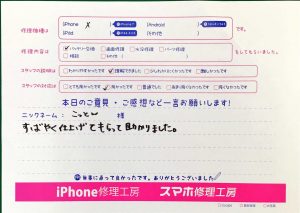 修理機種は
iPhone X
Android
iPad
その他
です。
修理内容は
バッテリー交換
画面修理
水没修理
パーツ修理
相談
その他
をしてもらいました。
スタッフの説明は
わかりやすかったです
理解できました
少しわかりにくかったです
難しかったです
スタッフの対応は
とても良かったです
良かったです
普通でした
あまり良くなかったです
悪かったです
本日のご意見・ご感想など一言お願いします!
ニックネーム:こっとン 様
すばやく仕上げてもらって助かりました。
修理に出って良かったです。ありがとうございました
iPhone修理工房
スマホ修理工房